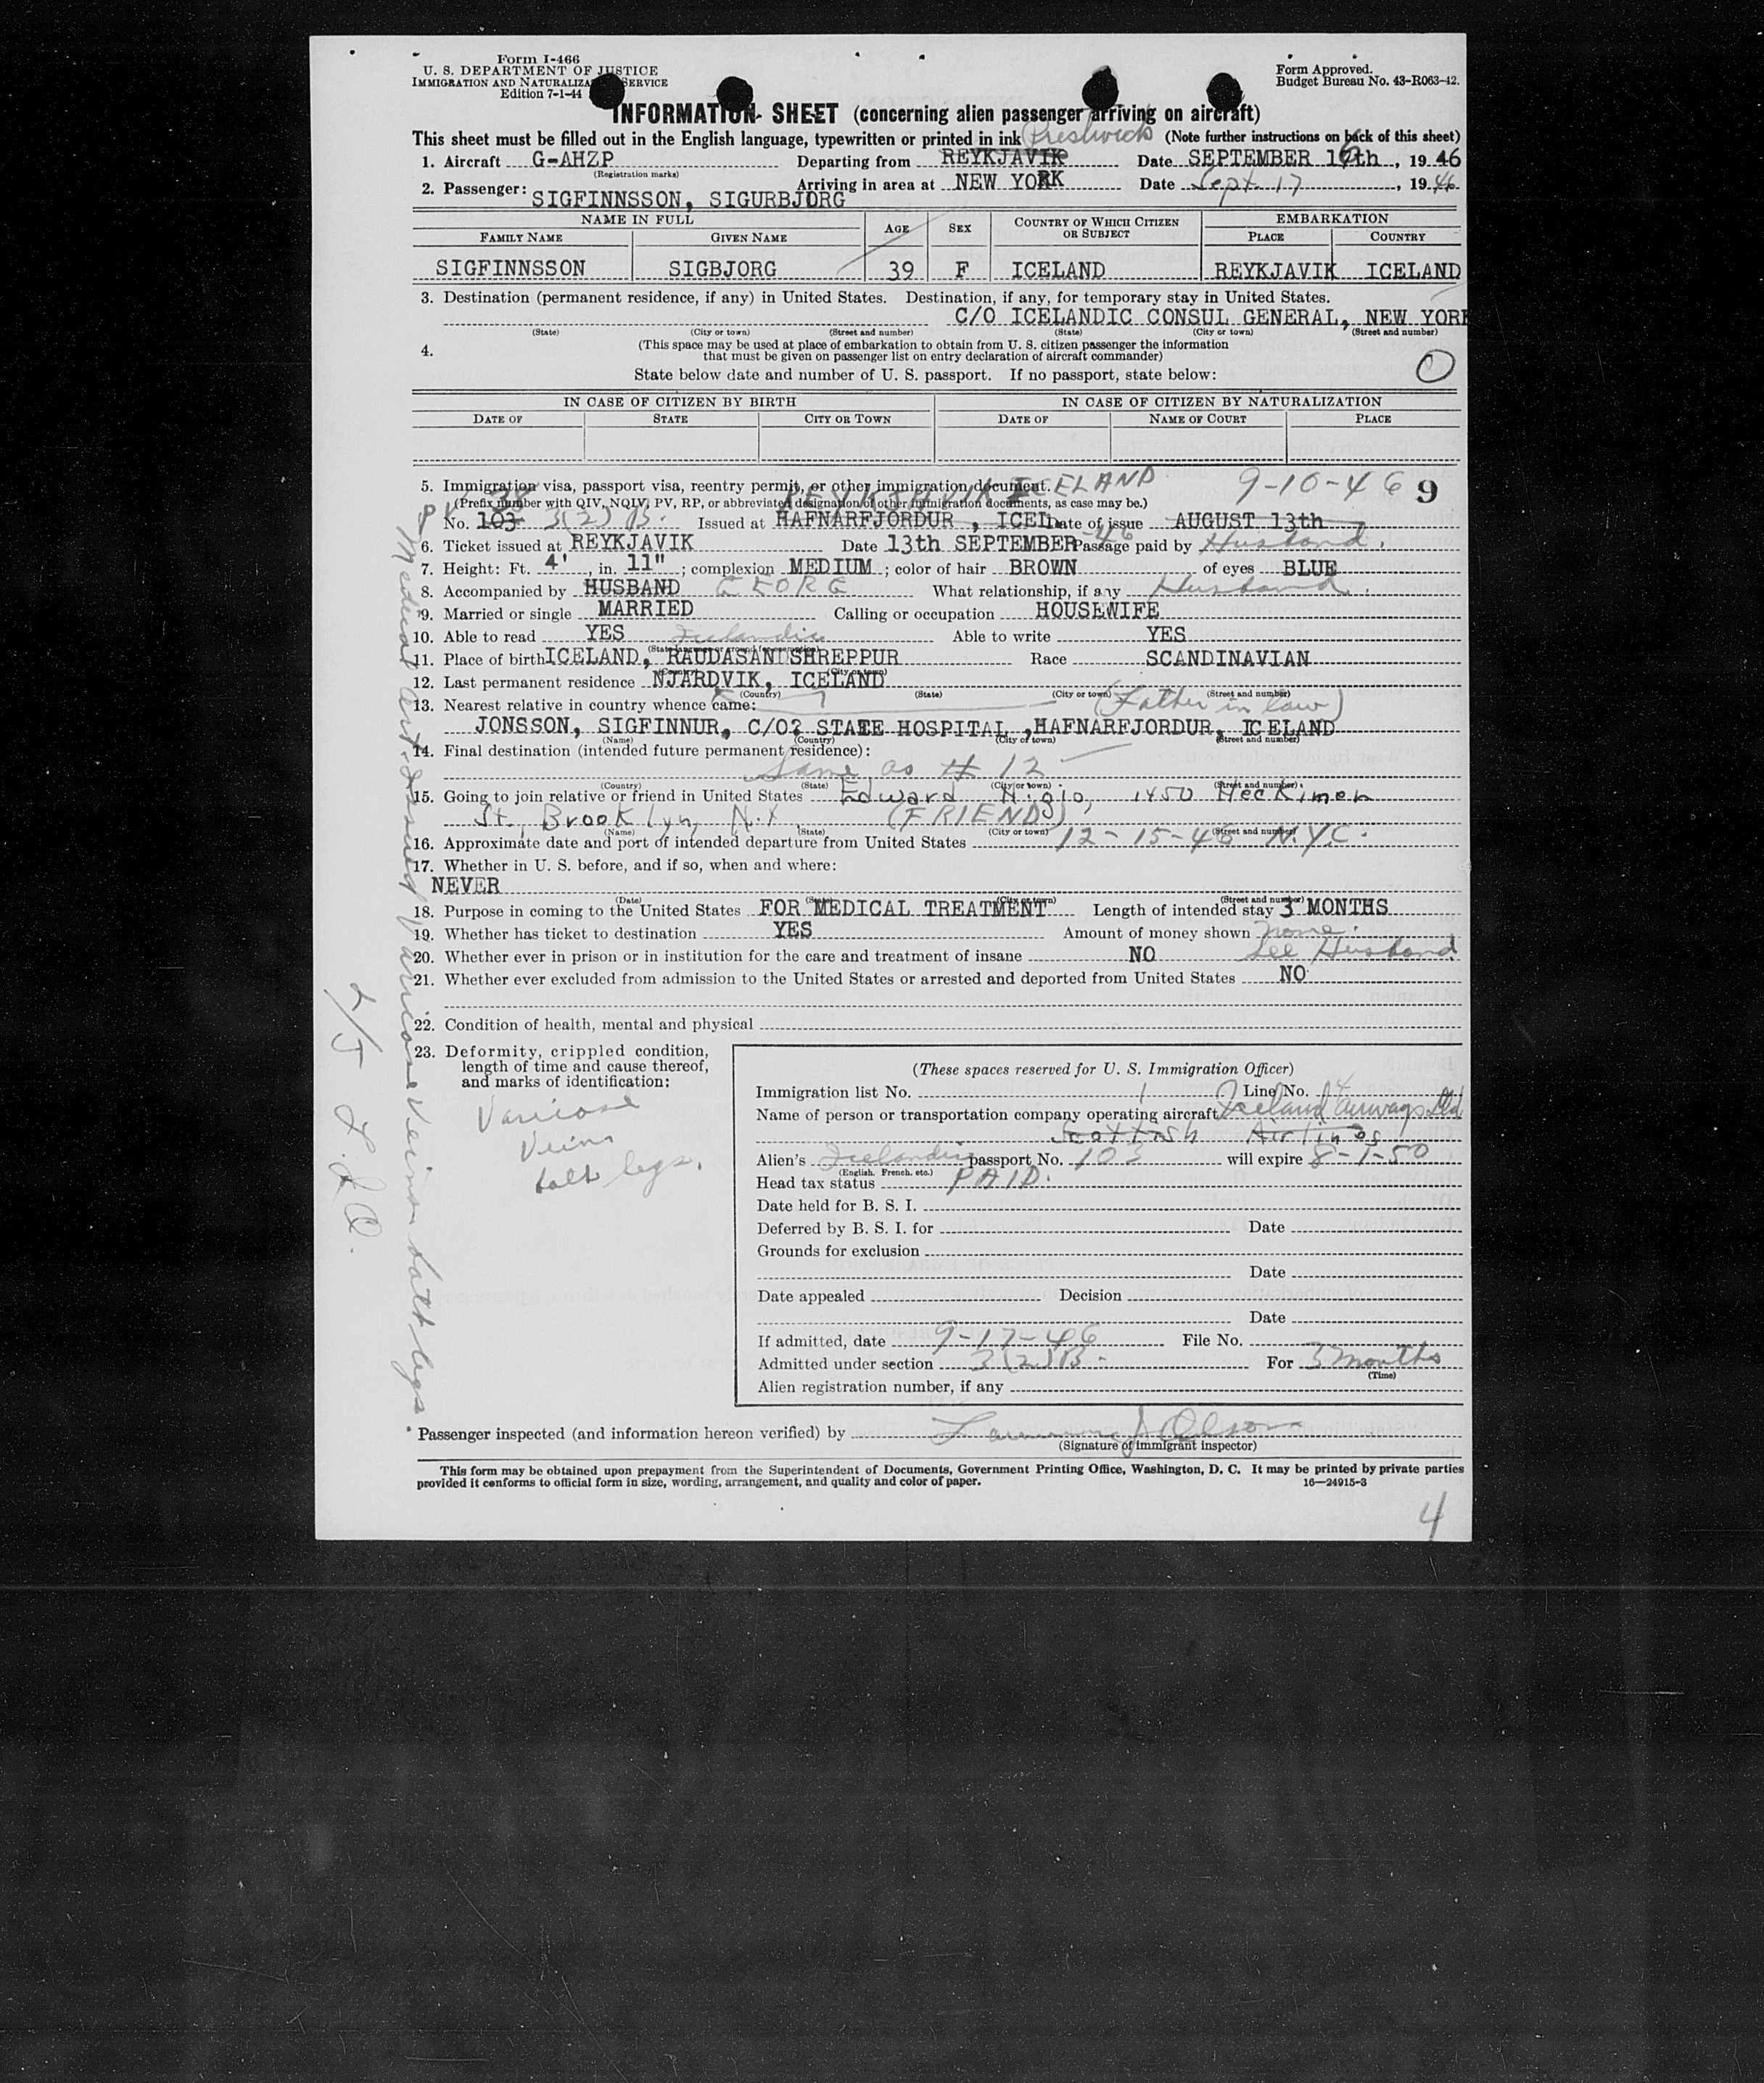 Form I-466
U. S. DEPARTMENT OF JUSTICE
IMMIGRATION AND NATURALIZATION SERVICE
Edition 7-1-44
Form Approved.
Budget Bureau No. 43-R063-42.
INFORMATION SHEET (concerning alien passenger arriving on aircraft)
This sheet must be filled out in the English language, typewritten or printed in ink Prestwick (Note further instructions on back of this sheet)
1. Aircraft G-AHZP Departing from REYKJAVIK Date SEPTEMBER 16th, 1946
(Registration marks)
2. Passenger: SIGFINNSSON, SIGURBJORG Arriving in area at NEW YORK Date Sept 17, 1946
NAME IN FULL AGE SEX COUNTRY OF WHICH CITIZEN OR SUBJECT EMBARKATION
FAMILY NAME GIVEN NAME PLACE COUNTRY
SIGFINNSSON SIGBJORG 39 F ICELAND REYKJAVIK ICELAND
3. Destination (permanent residence, if any) in United States. Destination, if any, for temporary stay in United States.
C/O ICELANDIC CONSUL GENERAL, NEW YORK
(State) (City or town) (Street and number) (State) (City or town) (Street and number)
4. (This space may be used at place of embarkation to obtain from U. S. citizen passenger the information
that must be given on passenger list on entry declaration of aircraft commander)
State below date and number of U. S. passport. If no passport, state below: O
IN CASE OF CITIZEN BY BIRTH IN CASE OF CITIZEN BY NATURALIZATION
DATE OF STATE CITY OR TOWN DATE OF NAME OF COURT PLACE
5. Immigration visa, passport visa, reentry permit, or other immigration document. REYKJAVIK ICELAND 9-10-46 9
(Prefix number with QIV, NQIV, PV, RP, or abbreviated designation of other immigration documents, as case may be.)
PV 38
No. 103 3(2)B. Issued at HAFNARFJORDUR, ICEL Date of issue AUGUST 13th
6. Ticket issued at REYKJAVIK Date 13th SEPTEMBER -46 Passage paid by Husband.
7. Height: Ft. 4', in. 11"; complexion MEDIUM; color of hair BROWN of eyes BLUE
8. Accompanied by HUSBAND GEORG What relationship, if any Husband.
9. Married or single MARRIED Calling or occupation HOUSEWIFE
10. Able to read YES Icelandic Able to write YES
(State language or ground for exemption)
11. Place of birth ICELAND, RAUDASANDSHREPPUR Race SCANDINAVIAN
(Country) (City or town)
12. Last permanent residence NJARDVIK, ICELAND
(Country) (State) (City or town) (Street and number)
13. Nearest relative in country whence came: (Father in law)
JONSSON, SIGFINNUR, C/O? STATE HOSPITAL, HAFNARFJORDUR, ICELAND
(Name) (Country) (City or town) (Street and number)
14. Final destination (intended future permanent residence):
Same as # 12
(Country) (State) (City or town) (Street and number)
15. Going to join relative or friend in United States Edward 1450 Heckimer
St., Brooklyn, N.Y. (FRIEND)
(Name) (State) (City or town) (Street and number)
16. Approximate date and port of intended departure from United States 12-15-46 N.Y.C.
17. Whether in U. S. before, and if so, when and where:
NEVER
(Date) (State) (City or town) (Street and number)
18. Purpose in coming to the United States FOR MEDICAL TREATMENT Length of intended stay 3 MONTHS
19. Whether has ticket to destination YES Amount of money shown none.
20. Whether ever in prison or in institution for the care and treatment of insane NO See Husband
21. Whether ever excluded from admission to the United States or arrested and deported from United States NO
22. Condition of health, mental and physical
23. Deformity, crippled condition,
length of time and cause thereof,
and marks of identification:
Varicose
Veins
both legs.
Medical Cert. Issued Varicose Veins both legs.
(These spaces reserved for U. S. Immigration Officer)
Immigration list No. 1 Line No. 4
Name of person or transportation company operating aircraft Iceland Airways Ltd
Scottish Airlines
Alien's Icelandic passport No. 103 will expire 8-1-50
(English, French, etc.)
Head tax status PAID.
Date held for B. S. I.
Deferred by B. S. I. for Date
Grounds for exclusion
Date
Date appealed Decision
Date
If admitted, date 9-17-46 File No.
Admitted under section 3(2)B. For 3 months
(Time)
Alien registration number, if any
Passenger inspected (and information hereon verified) by J Olson
(Signature of immigrant inspector)
This form may be obtained upon prepayment from the Superintendent of Documents, Government Printing Office, Washington, D. C. It may be printed by private parties
provided it conforms to official form in size, wording, arrangement, and quality and color of paper. 16—24915-3
4